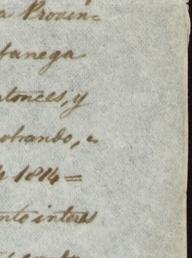 a Provin=
fanega
ntonces, y
obrando, 
1814=
nte interes